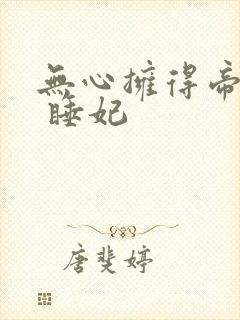 無心擁得帝
睡妃
唐斐婷